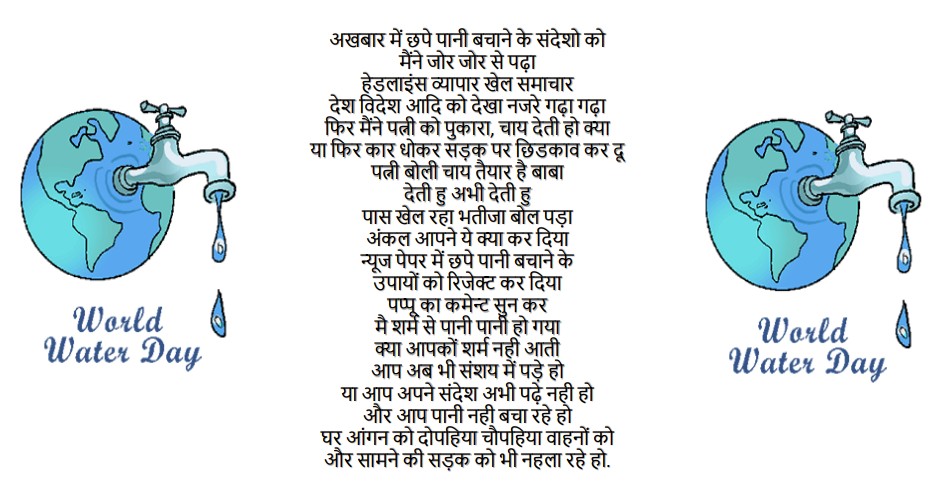 अखबार में छपे पानी बचाने के संदेशो को
मैंने जोर जोर से पढ़ा
हेडलाइंस व्यापार खेल समाचार
देश विदेश आदि को देखा नजरे गढ़ा गढ़ा
फिर मैंने पत्नी को पुकारा, चाय देती हो क्या
या फिर कार धोकर सड़क पर छिडकाव कर दू
पत्नी बोली चाय तैयार है बाबा
देती हु अभी देती हु
पास खेल रहा भतीजा बोल पड़ा
अंकल आपने ये क्या कर दिया
न्यूज पेपर में छपे पानी बचाने के
उपायों को रिजेक्ट कर दिया
पप्पू का कमेन्ट सुन कर
मै शर्म से पानी पानी हो गया
क्या आपकों शर्म नही आती
आप अब भी संशय में पड़े हो
या आप अपने संदेश अभी पढ़े नही हो
और आप पानी नही बचा रहे हो
घर आंगन को दोपहिया चौपहिया वाहनों को
और सामने की सड़क को भी नहला रहे हो.
World
Water Day
World
Water Day